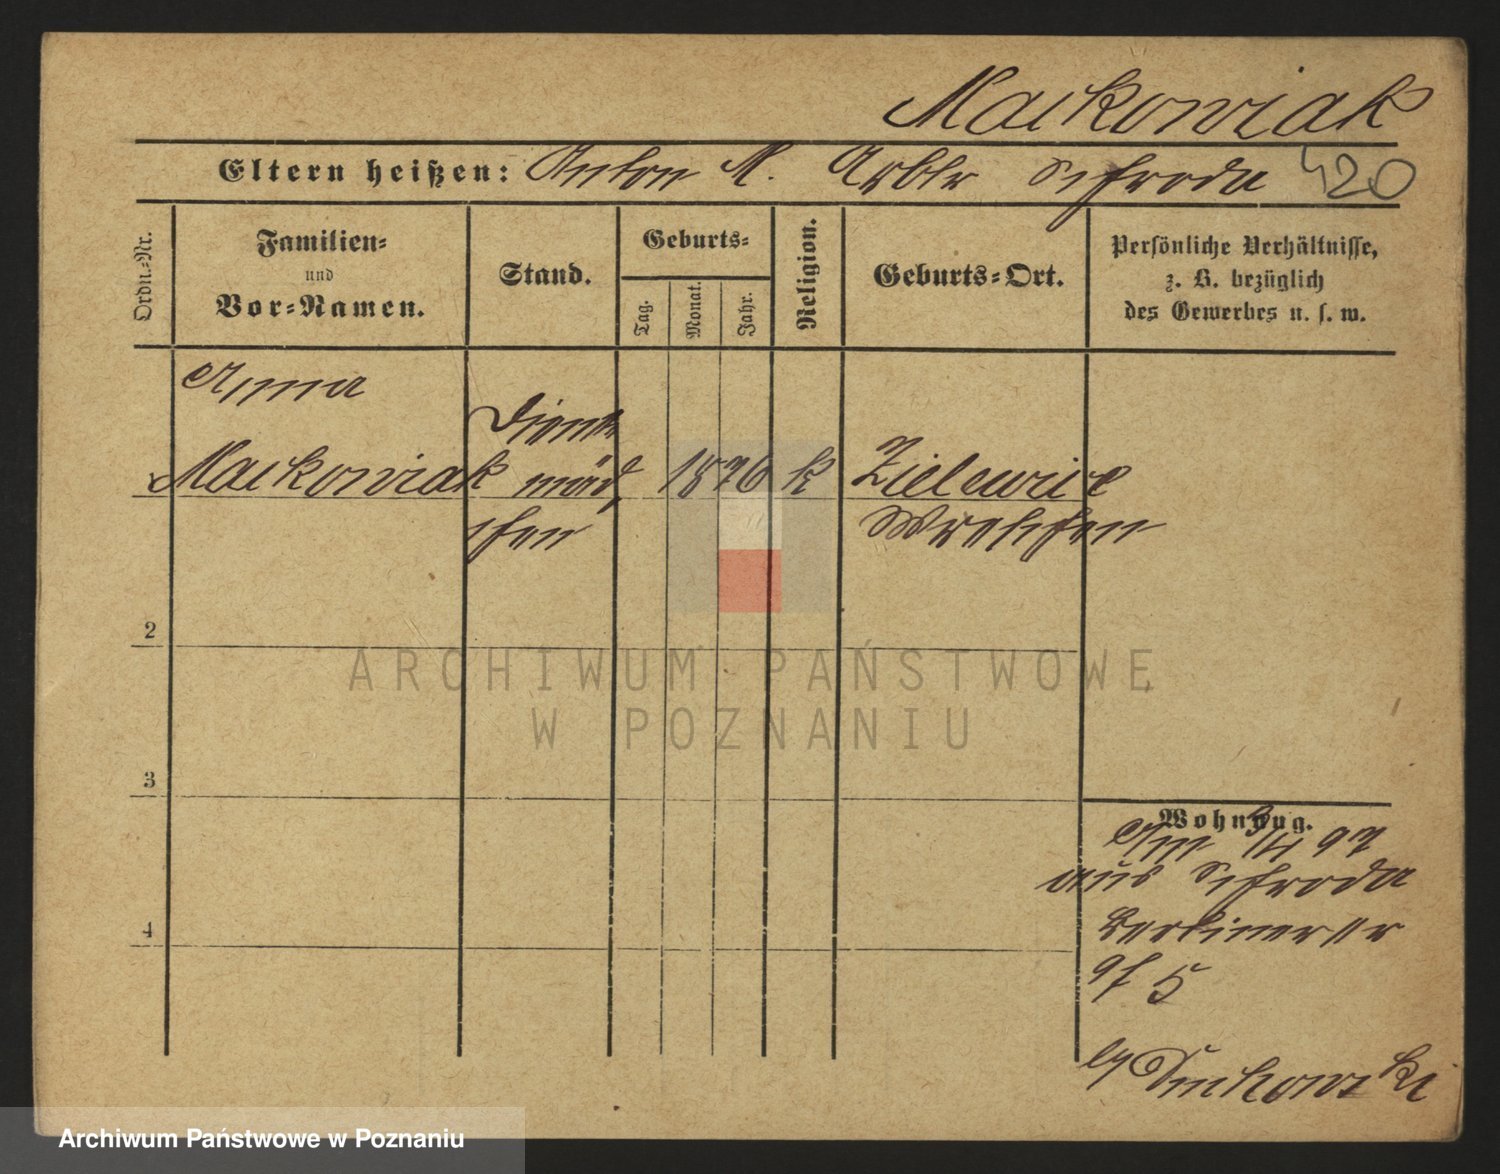 Maćkowiak
Eltern heißen: Anton M. Arbtr Schroda 420
Ordn.-Nr.
Familien-
und
Vor-Namen.
Stand.
Geburts-
Tag.
Monat.
Jahr.
Religion.
Geburts-Ort.
Persönliche Verhältnisse,
z. B. bezüglich
des Gewerbes u. s. w.
Anna
Maćkowiak
Dienst
mäd
chen
1876
k
Zielewice
Wreschen
2
3
4
Wohnung.
Am 97
aus Schroda
Berlinerstr
5
ARCHIWUM PAŃSTWOWE
W POZNANIU
Archiwum Państwowe w Poznaniu